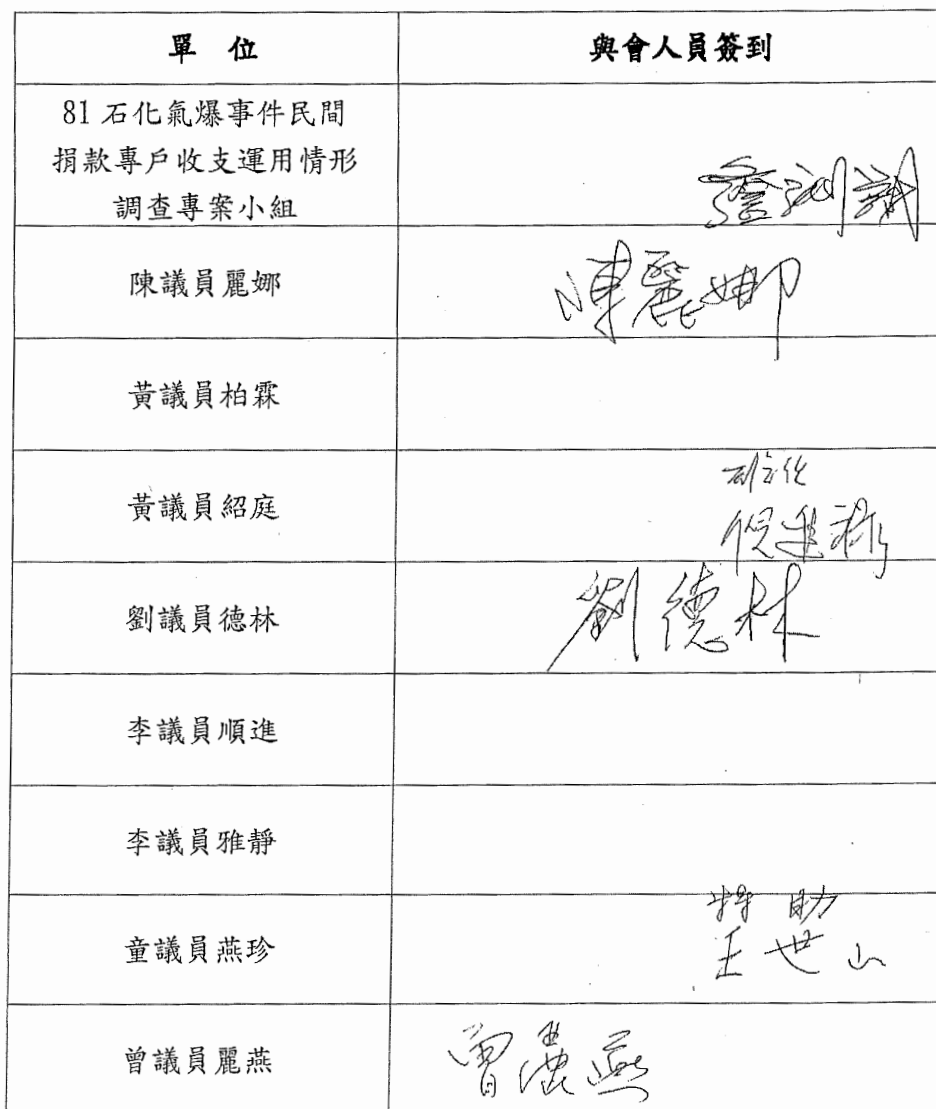 單 位 與會人員簽到
81 石化氣爆事件民間
捐款專戶收支運用情形
調查專案小組
陳議員麗娜 陳麗娜
黃議員柏霖
黃議員紹庭
劉議員德林 劉德林
李議員順進
李議員雅靜
特助
童議員燕珍 王世山
曾議員麗燕 曾麗燕